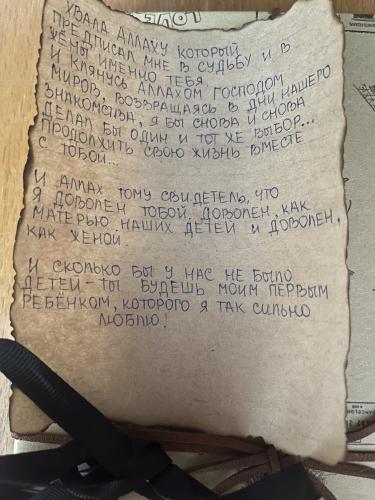 LOVE
ХВАЛА АЛЛАХУ КОТОРЫЙ
ПРЕДПИСАЛ МНЕ В СУДЬБУ И В
ЖЁНЫ ИМЕННО ТЕБЯ.
И КЛЯНУСЬ АЛЛАХОМ ГОСПОДОМ
МИРОВ, ВОЗВРАЩАЯСЬ В ДНИ НАШЕГО
ЗНАКОМСТВА, Я БЫ СНОВА И СНОВА
ДЕЛАЛ БЫ ОДИН И ТОТ ЖЕ ВЫБОР...
ПРОДОЛЖИТЬ СВОЮ ЖИЗНЬ ВМЕСТЕ
С ТОБОЙ...
И АЛЛАХ ТОМУ СВИДЕТЕЛЬ, ЧТО
Я ДОВОЛЕН ТОБОЙ. ДОВОЛЕН, КАК
МАТЕРЬЮ НАШИХ ДЕТЕЙ И ДОВОЛЕН,
КАК ЖЕНОЙ.
И СКОЛЬКО БЫ У НАС НЕ БЫЛО
ДЕТЕЙ - ТЫ БУДЕШЬ МОИМ ПЕРВЫМ
РЕБЁНКОМ, КОТОРОГО Я ТАК СИЛЬНО
ЛЮБЛЮ!